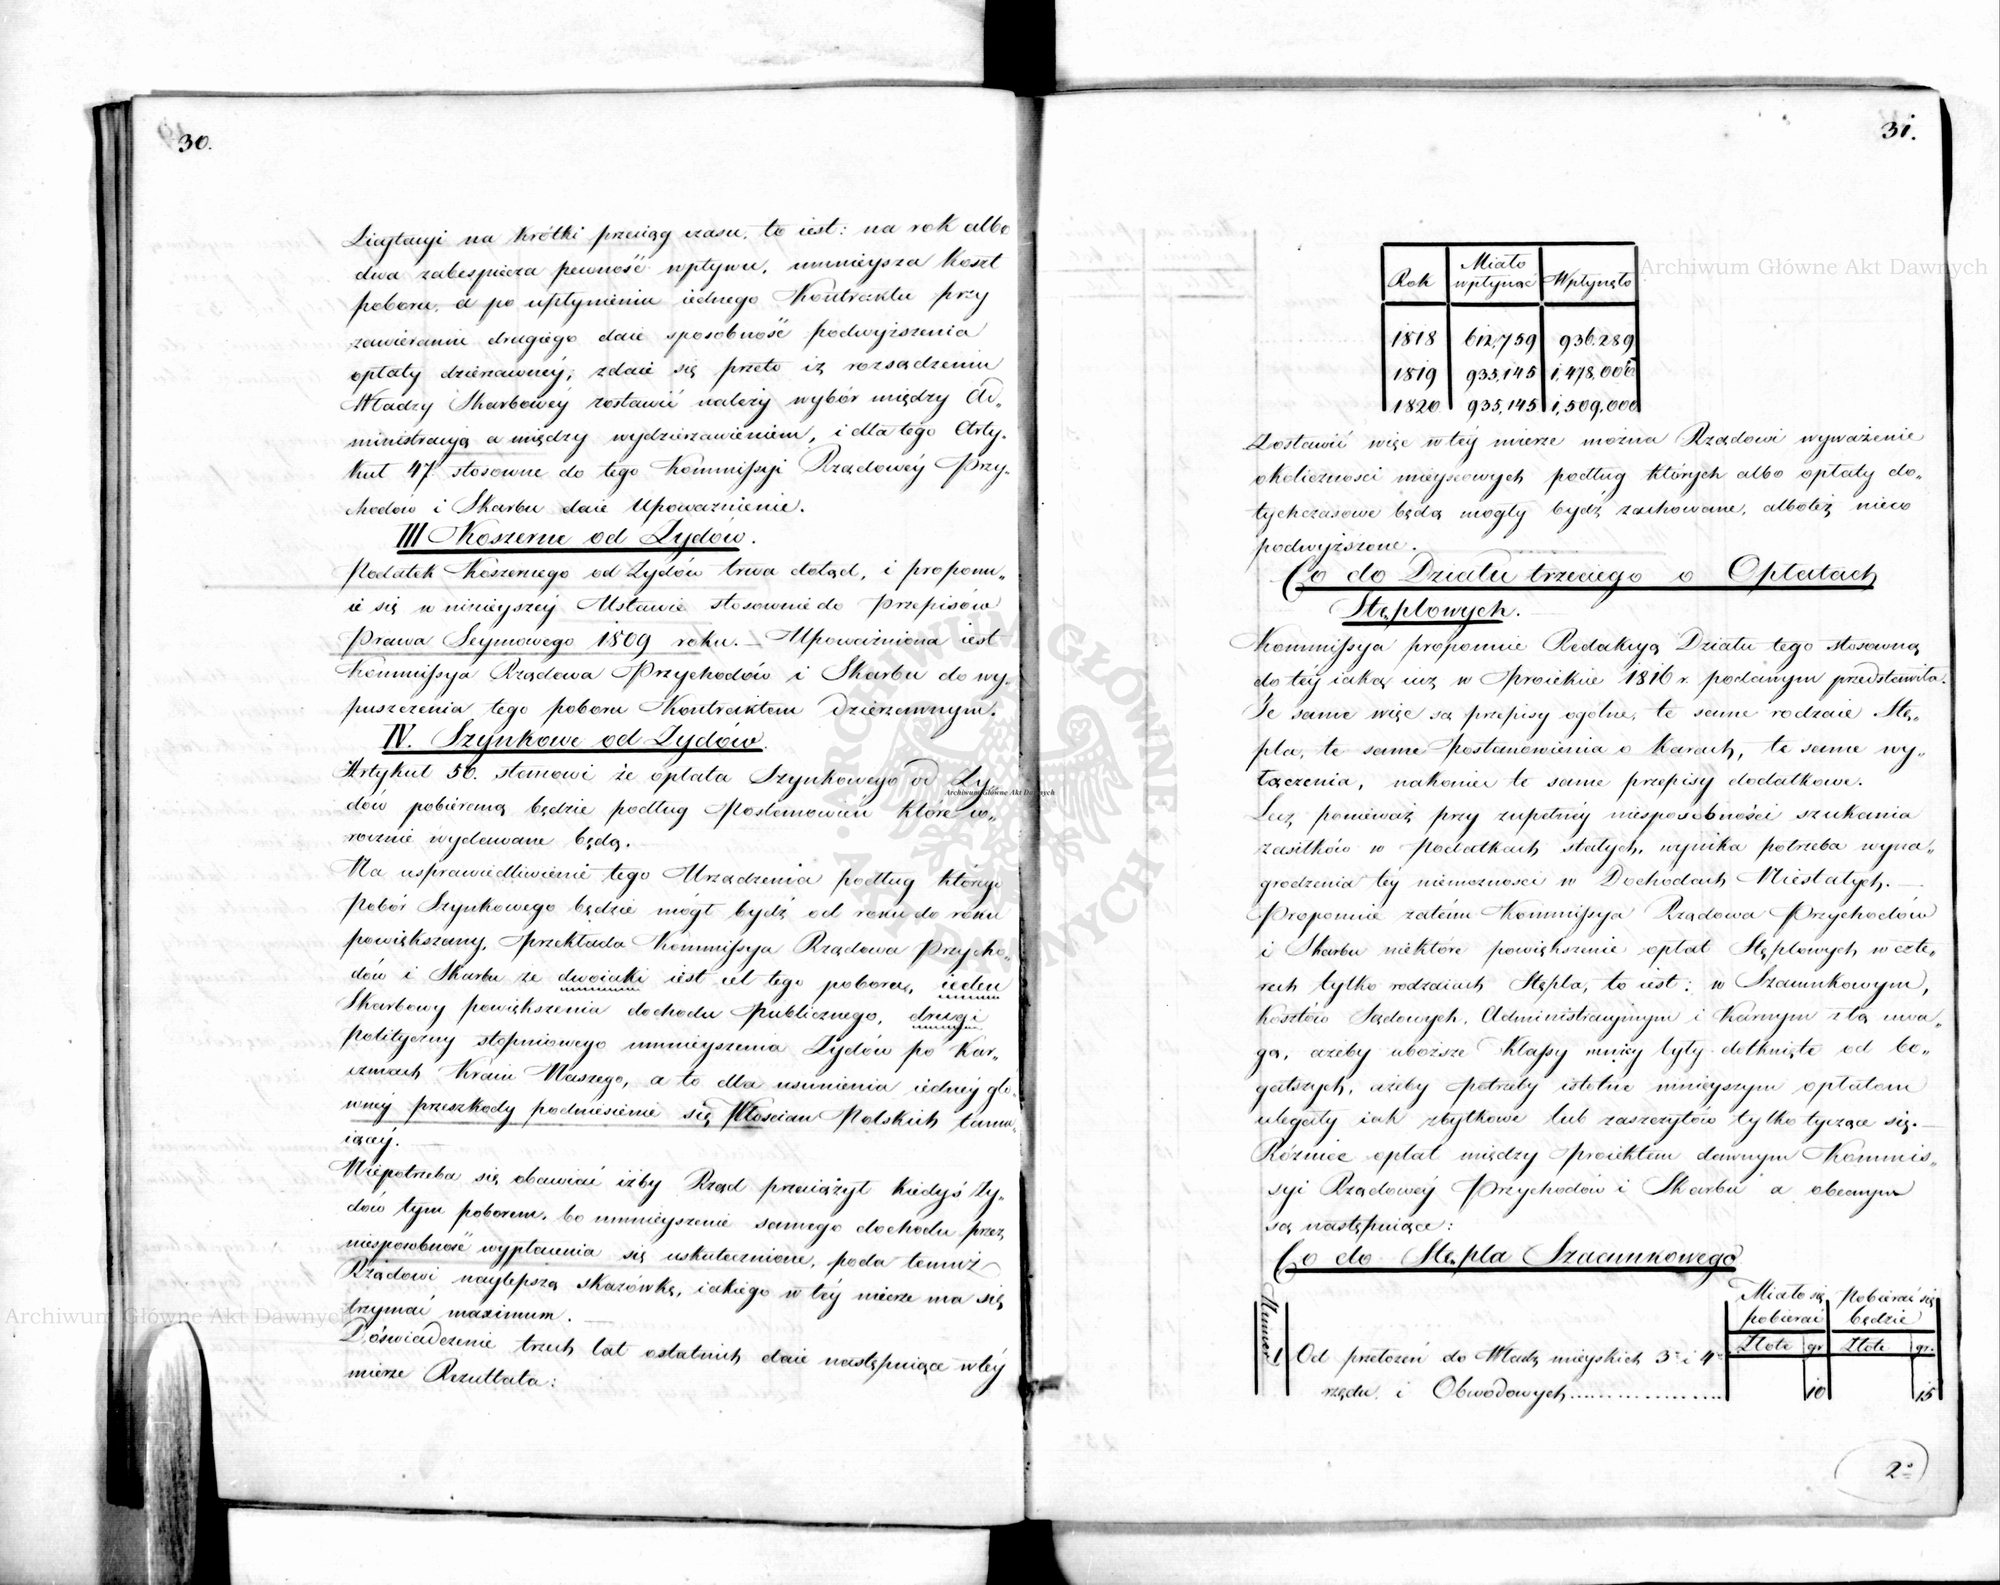 30.
Licytacyi na krótki przeciąg czasu, to iest: na rok albo
dwa zabespiecza pewność wpływu, umnieysza koszt
poboru, a po upłynieniu iednego Kontraktu przy
zawieraniu drugiego daie sposobność podwyższenia
opłaty dzierzawnéy; zdaie się przeto iż rozsądzeniu
Władzy Skarbowéy zostawić należy wybór między Ad„
ministracyą a między wydzierzawieniem, i dla tego Arty„
kuł 47 stosowne do tego Kommissyi Rządowéy Przy„
chodów i Skarbu daie Upoważnienie.
III Koszerne od Żydów.
Podatek Koszernego od Żydów trwa dotąd, i proponu„
ie się w ninieyszéy Ustawie stosownie do Przepisów
Prawa Seymowego 1809 roku. — Upoważniona iest
Kommissya Rządowa Przychodów i Skarbu do wy„
puszczenia tego poboru Kontraktem Dzierzawnym.
IV. Szynkowe od Żydów.
Artykuł 50. stanowi że opłata Szynkowego od Ży„
dów pobieraną będzie podług Postanowień które co„
rocznie wydawane będą.
Na usprawiedliwienie tego Urządzenia podług którego
Pobór Szynkowego będzie mógł bydź od roku do roku
powiększany, Przekłada Kommissya Rządowa Przycho„
dów i Skarbu że dwoiaki iest cel tego poboru, ieden
Skarbowy powiększenia dochodu Publicznego, drugi
polityczny stopniowego umnieyszenia Żydów po Kar„
czmach Kraiu Naszego, a to dla usunienia iednéy głó„
wnéy przeszkody podniesienie się Włościan Polskich tamu„
iącéy.
Niepotrzeba się obawiać iżby Rząd przeciążył kiedyś Ży„
dów tym poborem, bo umnieyszenie samego dochodu przez
niesposobność wypłacenia się uskutecznione, poda temuż
Rządowi naylepszą skazówkę, iakiego w téy mierze ma się
trzymać maximum.
Doświadczenie trzech lat ostatnich daie następuiące w téy
mierze Rezultata:
31.
Rok Miało wpłynąć Wpłynęło
1818 612,759 936,289
1819 935,145 1,478,000
1820 935,145 1,509,000
Zostawić więc w téy mierze można Rządowi wyważenie
okoliczności mieyscowych podług których albo opłaty do„
tychczasowe będą mogły bydź zachowane, alboteż nieco
podwyższone.
Co do Działu trzeciego o Opłatach
Stęplowych.
Kommissya proponuie Redakcyą Działu tego stosowną
do téy iaką iuż w Proiekcie 1816 r. podanym przedstawiła.
Te same więc są przepisy ogólne, te same rodzaie Stę„
pla, te same Postanowienia o karach, te same wy„
łączenia, nakoniec te same przepisy dodatkowe.
Lecz ponieważ przy zupełnéy niesposobności szukania
zasiłków w Podatkach stałych, wynika potrzeba wyna„
grodzenia téy niemożności w Dochodach Niestałych. —
Proponuie zatém Kommissya Rządowa Przychodów
i Skarbu niektóre powiększenie opłat Stęplowych w czte„
rech tylko rodzaiach Stępla, to iest: w Szacunkowym,
Kosztów Sądowych, Administracyinym i Karnym z tą uwa„
gą, ażeby uboższe Klassy mniéy były dotknięte od bo„
gatszych, ażeby potrzeby istotne mnieyszym opłatom
ulegały iak zbytkowe lub zaszczytów tylko tyczące się. —
Różnice opłat między Proiektem dawnym Kommis„
syi Rządowéy Przychodów i Skarbu a obecnym
są następuiące:
Co do Stępla Szacunkowego
Numer Miało się pobierać Pobierać się będzie
Złote gr Złote gr.
1 Od przełożeń do Władz mieyskich 3 i 4
rzędu, i Obwodowych 10 15
2°
Archiwum Główne Akt Dawnych
Archiwum Główne Akt Dawnych
Archiwum Główne Akt Dawnych
ARCHIWUM GŁÓWNE AKT DAWNYCH